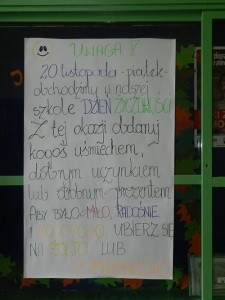 UWAGA!
20 listopada - piątek -
obchodzimy w naszej
szkole DZIEŃ ŻYCZLIWOŚCI
Z tej okazji obdaruj
kogoś uśmiechem,
dobrym uczynkiem
lub drobnym prezentem.
ABY BYŁO MIŁO, RADOŚNIE
UBIERZ SIĘ
NA ŻÓŁTO LUB